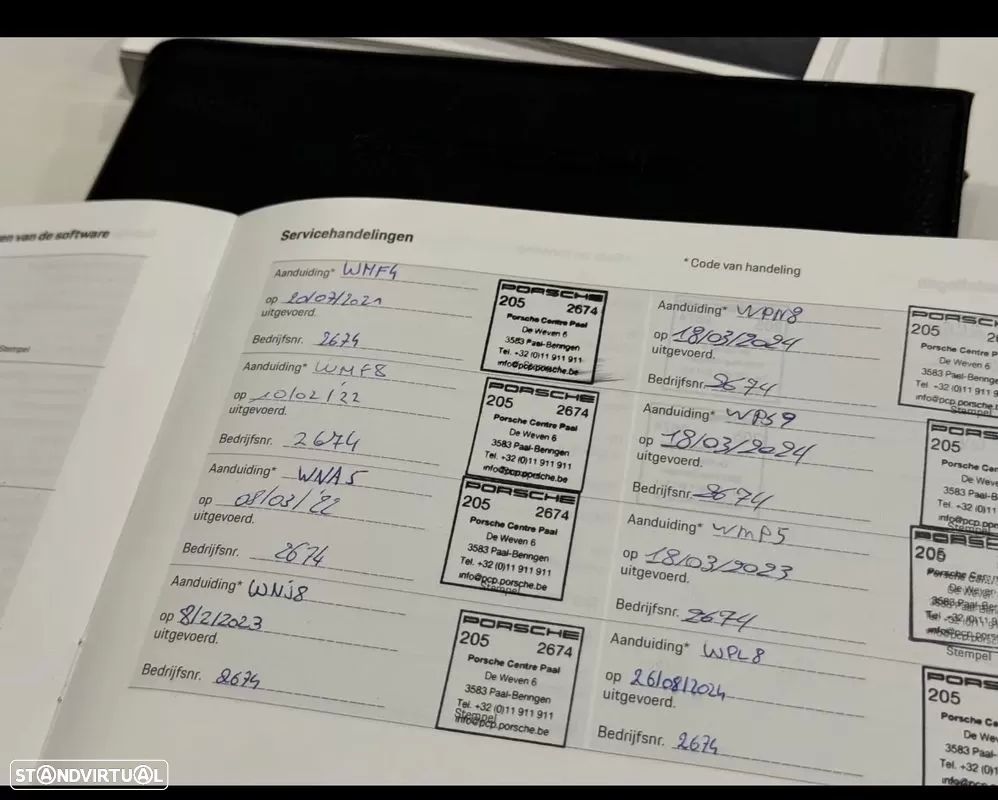 en van de software
Stempel
Servicehandelingen
* Code van handeling
Aanduiding* WMF4
op 20/07/2021
uitgevoerd.
Bedrijfsnr. 2674
PORSCHE
205 2674
Porsche Centre Paal
De Weven 6
3583 Paal-Beringen
Tel. +32 (0)11 911 911
info@pcp.porsche.be
Aanduiding* WMF8
op 10/02/'22
uitgevoerd.
Bedrijfsnr. 2674
PORSCHE
205 2674
Porsche Centre Paal
De Weven 6
3583 Paal-Beringen
Tel. +32 (0)11 911 911
info@pcp.porsche.be
Aanduiding* WNA5
op 08/03/'22
uitgevoerd.
Bedrijfsnr. 2674
PORSCHE
205 2674
Porsche Centre Paal
De Weven 6
3583 Paal-Beringen
Tel. +32 (0)11 911 911
info@pcp.porsche.be
Stempel
Aanduiding* WNJ8
op 8/2/2023
uitgevoerd.
Bedrijfsnr. 2674
PORSCHE
205 2674
Porsche Centre Paal
De Weven 6
3583 Paal-Beringen
Tel. +32 (0)11 911 911
Stempel
info@pcp.porsche.be
Aanduiding* WPN8
op 18/03/2024
uitgevoerd.
Bedrijfsnr. 2674
PORSC
205
Porsche Centre
De Weven
3583 Paal-Be
Tel. +32 (0)11 9
info@pcp.porsc
Stempel
Aanduiding* WPS9
op 18/03/2024
uitgevoerd.
Bedrijfsnr. 2674
PORS
205
Porsche Ce
De Wev
3583 Paal-B
Tel. +32 (0)11
info@pcp.por
Stempel
Aanduiding* WMP5
op 18/03/2023
uitgevoerd.
Bedrijfsnr. 2674
PORSC
205
Stempel
Aanduiding* WPL8
op 26/08/2024
uitgevoerd.
Bedrijfsnr. 2674
PORS
205
Porsche Ce
De We
3583 Paal-
Tel. +32 (0)1
info@pcp.po
STANDVIRTUAL